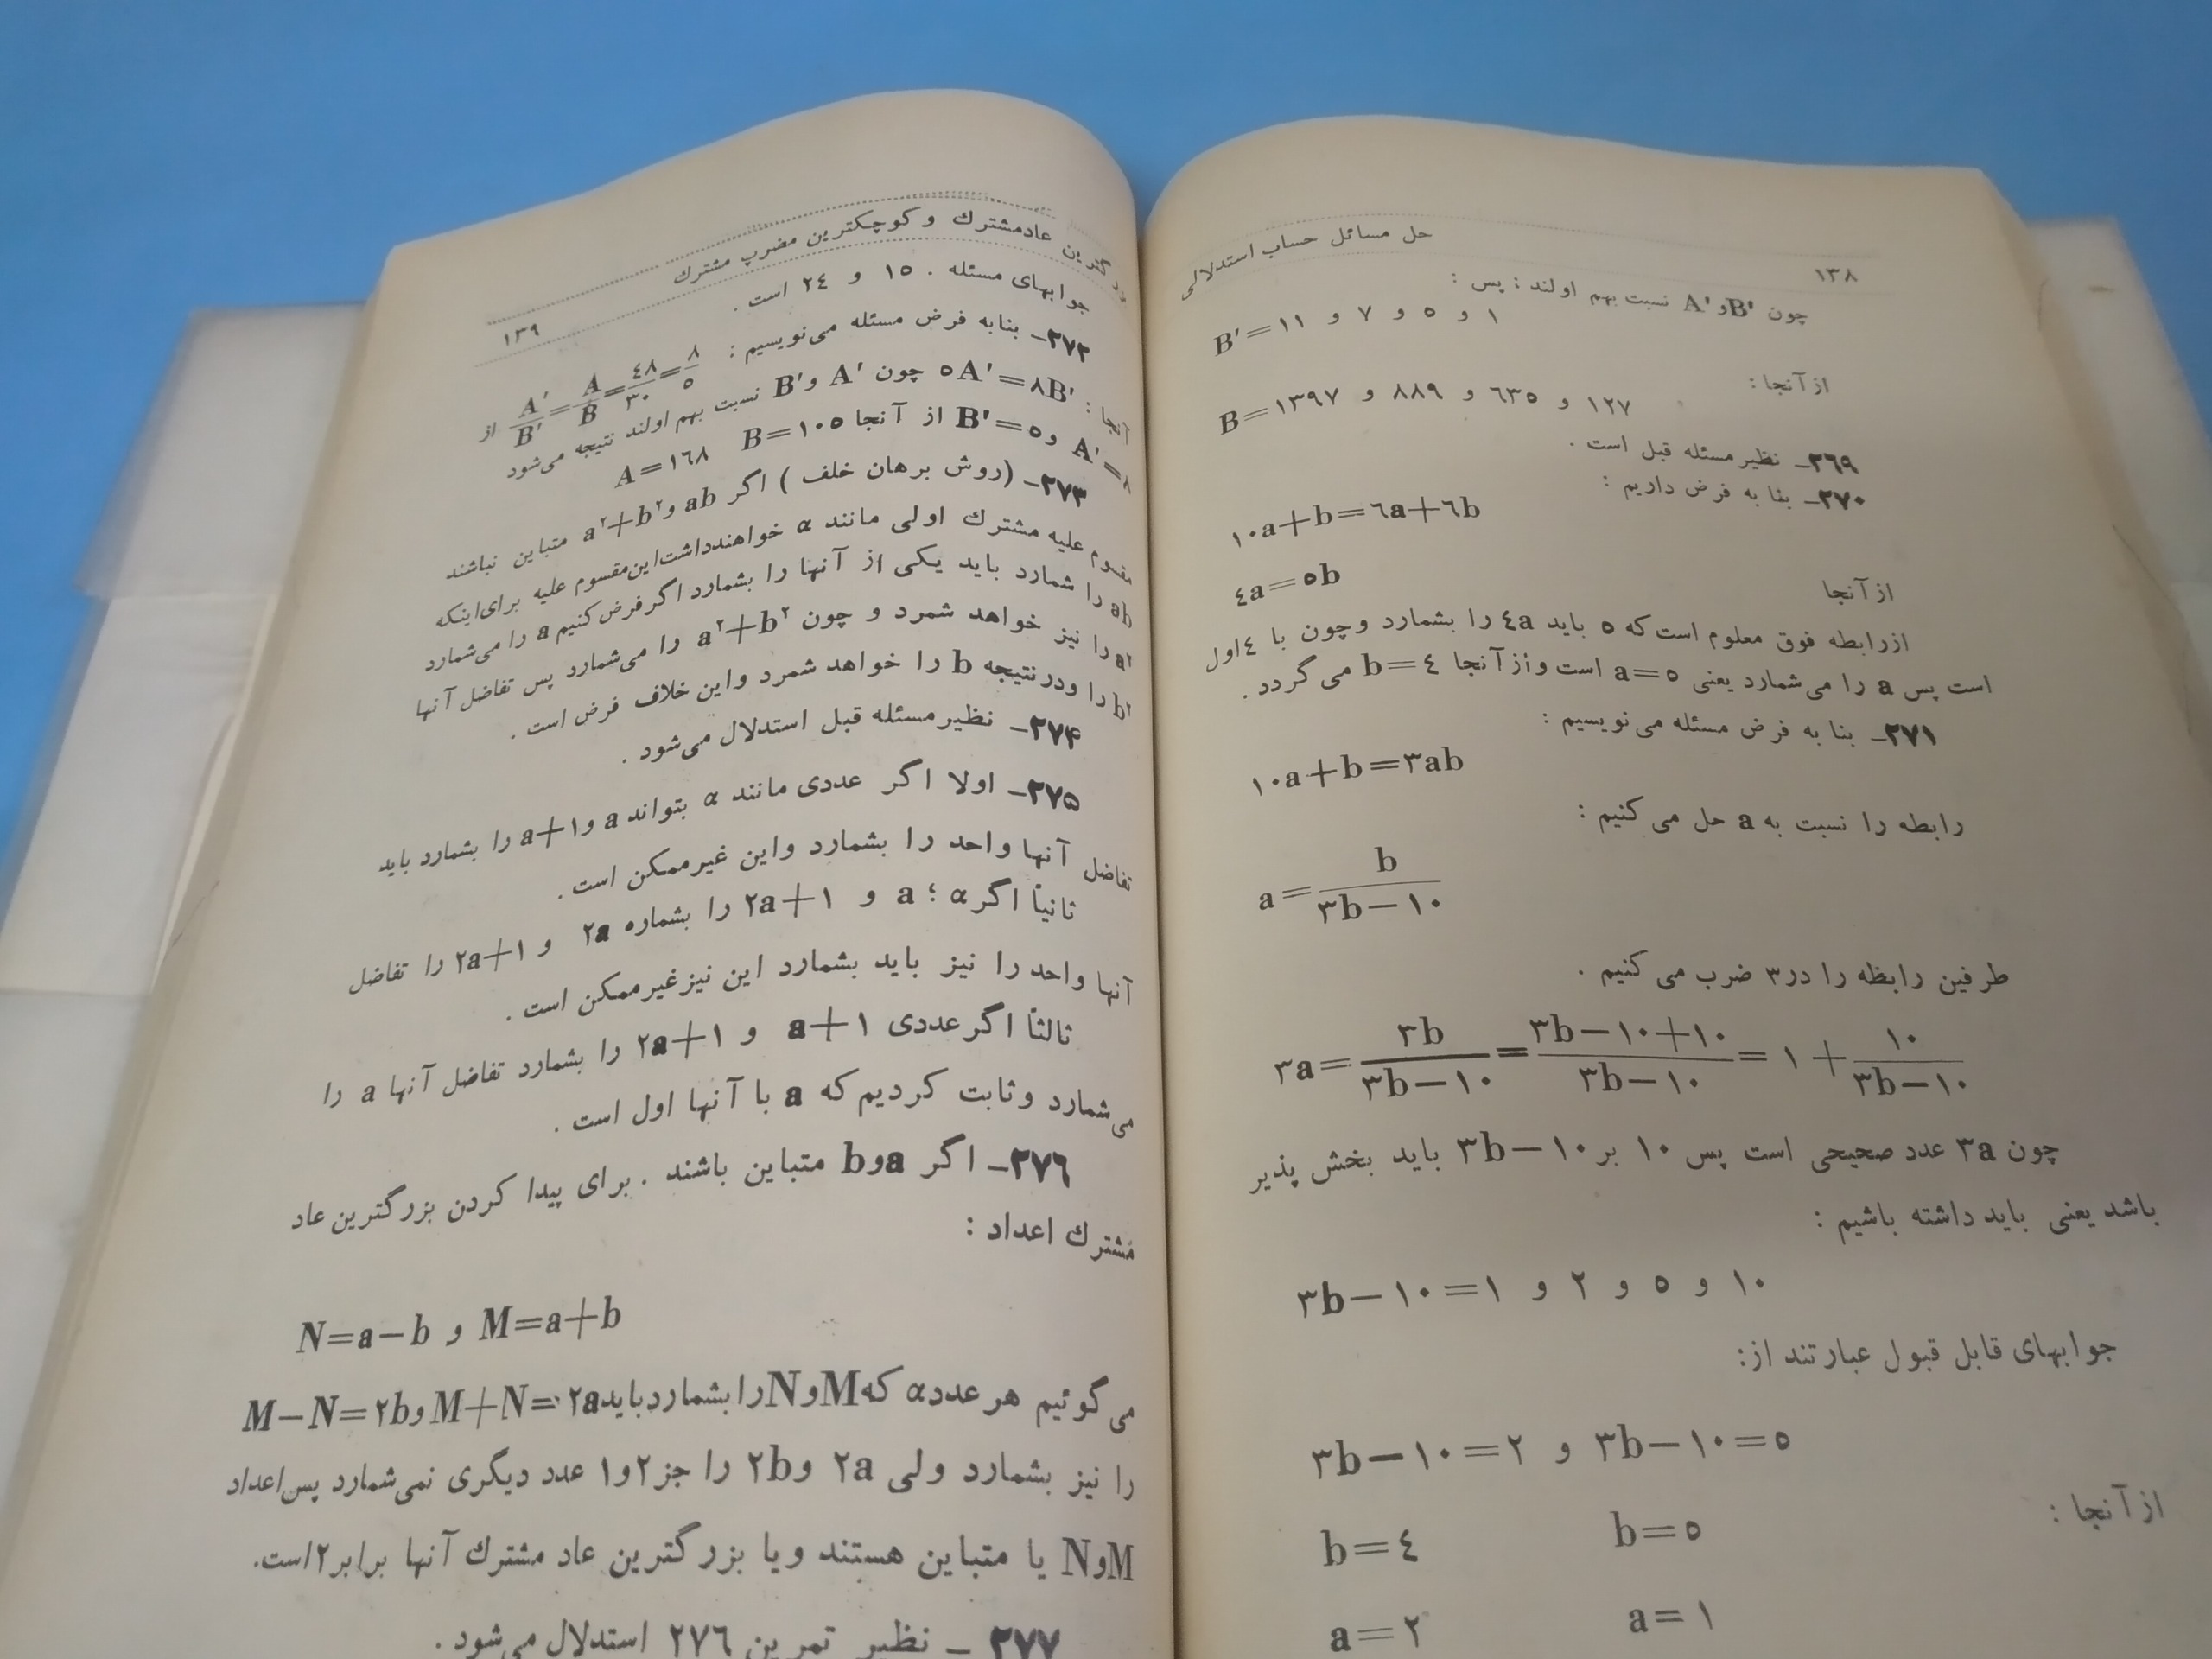 ١٣٨
حل مسائل حساب استدلالی
چون B' و A' نسبت بهم اولند : پس :
B'=١١ و ٧ و ٥ و ١
از آنجا :
B=١٣٩٧ و ٨٨٩ و ٦٣٥ و ١٢٧
٢٦٩ـ نظیر مسئله قبل است .
٢٧٠ـ بنا به فرض داریم :
١٠a+b=٦a+٦b
از آنجا
٤a=٥b
از رابطه فوق معلوم است که ٥ باید ٤a را بشمارد و چون با ٤ اول
است پس a را می شمارد یعنی a=٥ است و از آنجا b=٤ می گردد .
٢٧١ـ بنا به فرض مسئله می نویسیم :
١٠a+b=٣ab
رابطه را نسبت به a حل می کنیم :
a=b/(٣b−١٠)
طرفین رابظه را در ٣ ضرب می کنیم .
٣a=٣b/(٣b−١٠)=(٣b−١٠+١٠)/(٣b−١٠)=١+١٠/(٣b−١٠)
چون ٣a عدد صحیحی است پس ١٠ بر ٣b−١٠ باید بخش پذیر
باشد یعنی باید داشته باشیم :
٣b−١٠=١ و ٢ و ٥ و ١٠
جوابهای قابل قبول عبارتند از:
٣b−١٠=٢ و ٣b−١٠=٥
از آنجا :
b=٤ b=٥
a=٢ a=١
گترین عاد مشترك و کوچکترین مضرب مشترك
١٣٩
جوابهای مسئله . ١٥ و ٢٤ است .
٢٧٢ـ بنا به فرض مسئله می نویسیم : A'/B'=A/B=٤٨/٣٠=٨/٥ از
آنجا : ٥A'=٨B' چون A' و B' نسبت بهم اولند نتیجه می شود
A'=٨ و B'=٥ از آنجا B=١٠٥ A=١٦٨
٢٧٣ـ (روش برهان خلف) اگر ab و a²+b² متباین نباشند
مقسوم علیه مشترك اولی مانند α خواهند داشت این مقسوم علیه برای اینکه
ab را شمارد باید یکی از آنها را بشمارد اگر فرض کنیم a را می شمارد
a² را نیز خواهد شمرد و چون a²+b² را می شمارد پس تفاضل آنها
b² را و در نتیجه b را خواهد شمرد و این خلاف فرض است .
٢٧۴ـ نظیر مسئله قبل استدلال می شود .
٢٧۵ـ اولا اگر عددی مانند α بتواند a و a+١ را بشمارد باید
تفاضل آنها واحد را بشمارد و این غیر ممکن است .
ثانیاً اگر α ؛ a و ٢a+١ را بشماره ٢a و ٢a+١ را تفاضل
آنها واحد را نیز باید بشمارد این نیز غیر ممکن است .
ثالثاً اگر عددی a+١ و ٢a+١ را بشمارد تفاضل آنها a را
می شمارد و ثابت کردیم که a با آنها اول است .
٢٧٦ـ اگر a و b متباین باشند . برای پیدا کردن بزرگترین عاد
مشترك اعداد :
N=a−b و M=a+b
می گوئیم هر عدد α که M و N را بشمارد باید M+N=٢a و M−N=٢b
را نیز بشمارد ولی ٢a و ٢b را جز ٢ و ١ عدد دیگری نمی شمارد پس اعداد
M و N یا متباین هستند و یا بزرگترین عاد مشترك آنها برابر ٢ است.
٢٧٧ ـ نظیر تمرین ٢٧٦ استدلال می شود .